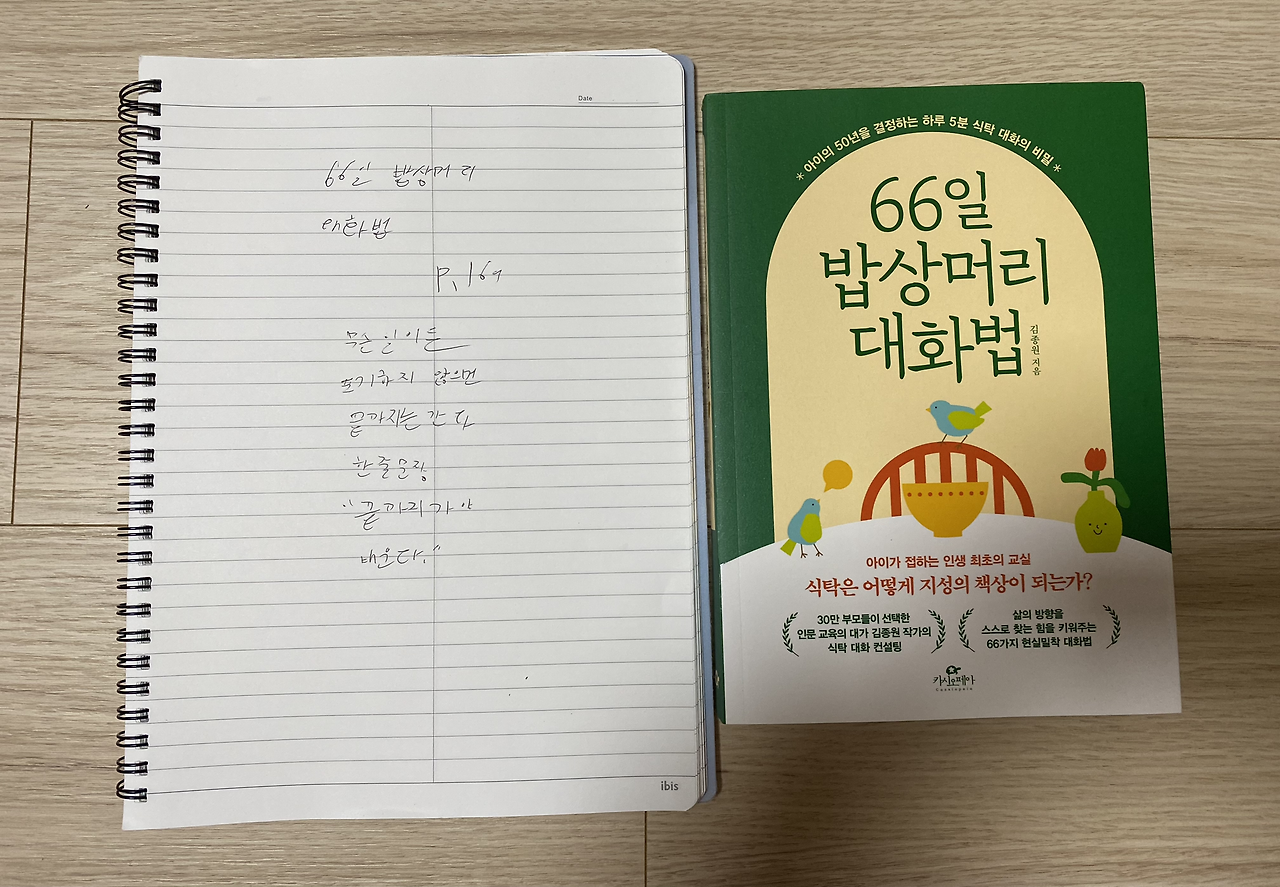 Date
66일 밥상머리
대화법
P.169
무슨 일이든
포기하지 않으면
끝까지는 간다
한줄문장
"끝까지 가야
배운다."
ibis
*아이의 50년을 결정하는 하루 5분 식탁 대화의 비밀*
66일
밥상머리
대화법
김종원 지음
아이가 접하는 인생 최초의 교실
식탁은 어떻게 지성의 책상이 되는가?
30만 부모들이 선택한
인문 교육의 대가 김종원 작가의
식탁 대화 컨설팅
삶의 방향을
스스로 찾는 힘을 키워주는
66가지 현실밀착 대화법
카시오페아
Cassiopeia